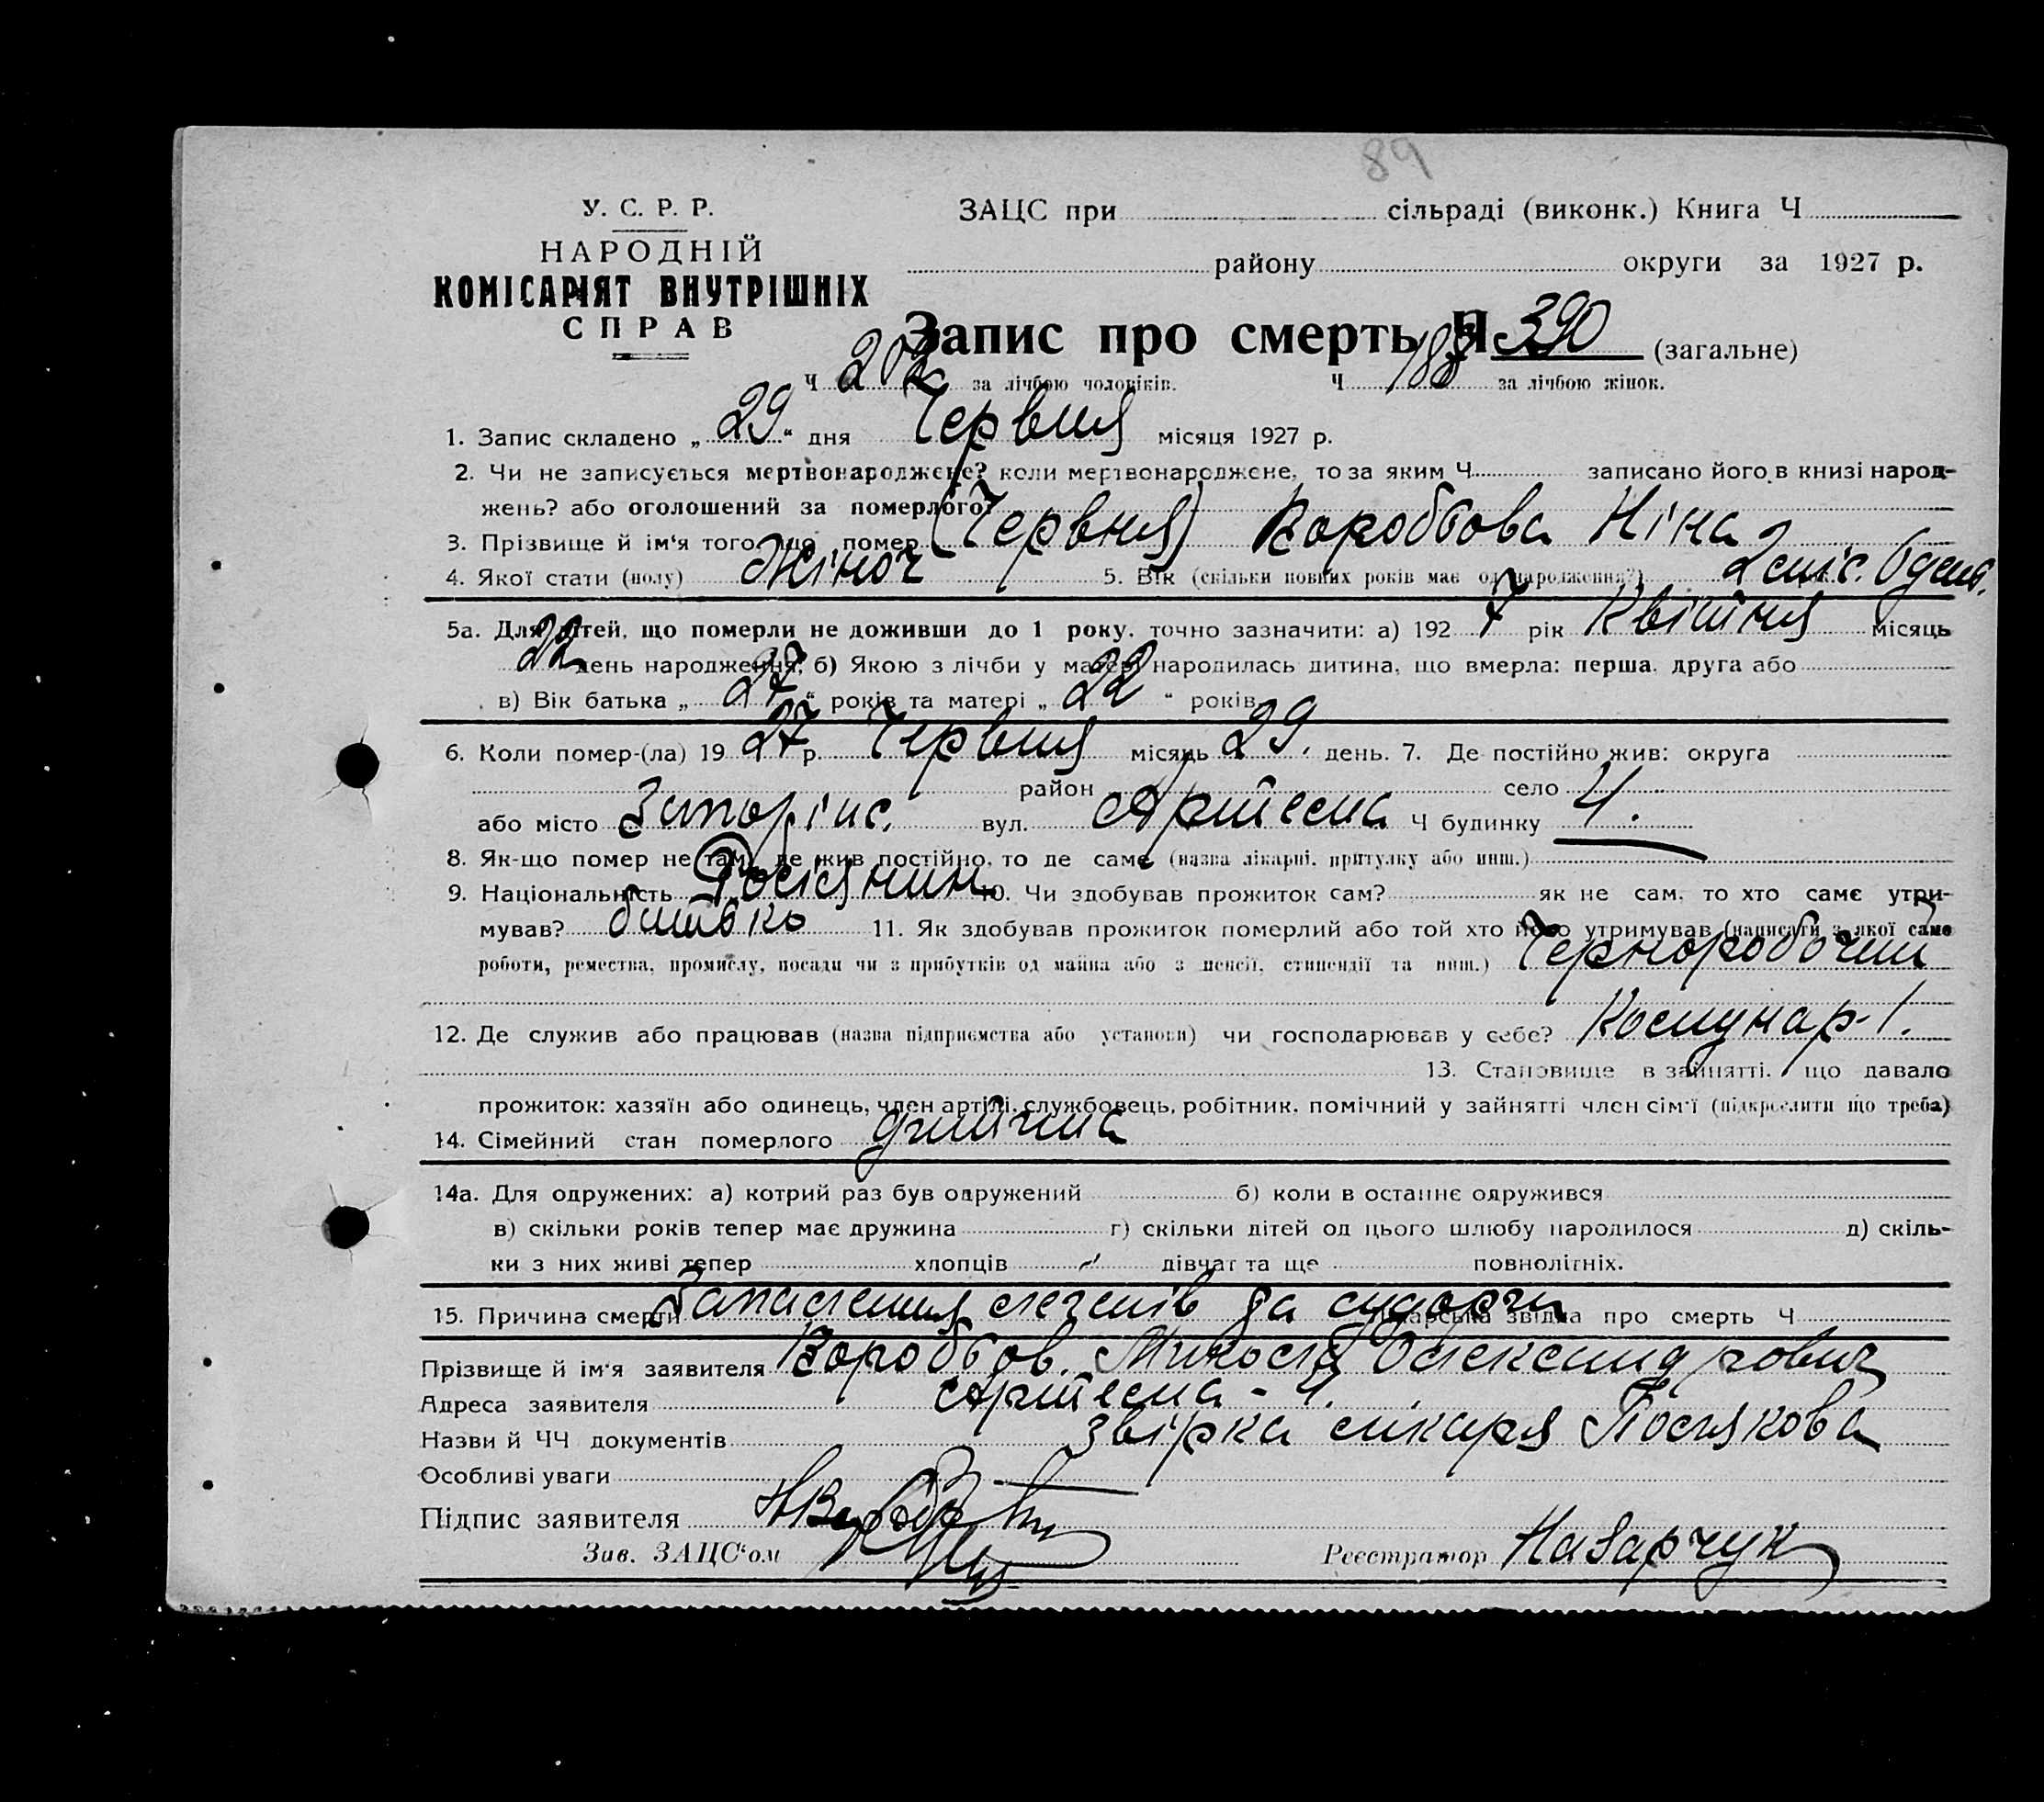 89
У. С. Р. Р.
НАРОДНІЙ
КОМІСАРІЯТ ВНУТРІШНІХ
СПРАВ
ЗАЦС при сільраді (виконк.) Книга Ч
району округи за 1927 р.
Запис про смерть Ч 390 (загальне)
Ч 202 за лічбою чоловіків. Ч 188 за лічбою жінок.
1. Запис складено „29“ дня Червня місяця 1927 р.
2. Чи не записується мертвонароджене? коли мертвонароджене, то за яким Ч записано його в книзі народ-
жень? або оголошений за померлого?
3. Прізвище й ім'я того, що помер (Червня) Воробьова Ніна
4. Якої стати (полу) Жіноч 5. Вік (скільки повних років має од народження?) 2 міс. 6 день.
5а. Для дітей, що померли не доживши до 1 року, точно зазначити: а) 192 7 рік Квітня місяць
22 день народження; б) Якою з лічби у матері народилась дитина, що вмерла: перша, друга або
в) Вік батька „27“ років та матері „22“ років.
6. Коли помер-(ла) 19 27 р. Червня місяць 29. день. 7. Де постійно жив: округа
район село
або місто Запоріж. вул. Артема Ч будинку 4.
8. Як-що помер не там, де жив постійно, то де саме (назва лікарні, притулку або инш.)
9. Національність Росіянин 10. Чи здобував прожиток сам? як не сам, то хто саме утри-
мував? батько 11. Як здобував прожиток померлий або той хто його утримував (написати з якої саме
роботи, ремества, промислу, посади чи з прибутків од майна або з пенсії, стипендії та инш.) Чернорабочий
12. Де служив або працював (назва підприємства або установи) чи господарював у себе? Комунар-1.
13. Становище в зайнятті, що давало
прожиток: хазяїн або одинець, член артілі, службовець, робітник, помічний у зайнятті член сім'ї (підкреслити що треба)
14. Сімейний стан померлого дитина
14а. Для одружених: а) котрий раз був одружений б) коли в останнє одружився
в) скільки років тепер має дружина г) скільки дітей од цього шлюбу народилося д) скіль-
ки з них живі тепер хлопців дівчат та ще повнолітніх.
15. Причина смерти Запалення легенів да судорги Лікарська звідка про смерть Ч
Прізвище й ім'я заявителя Воробьов Микола Олександрович
Адреса заявителя Артема - 4.
Назви й ЧЧ документів Звірка лікаря Полякова
Особливі уваги
Підпис заявителя
Зав. ЗАЦС'ом Реєстратор Назарчук